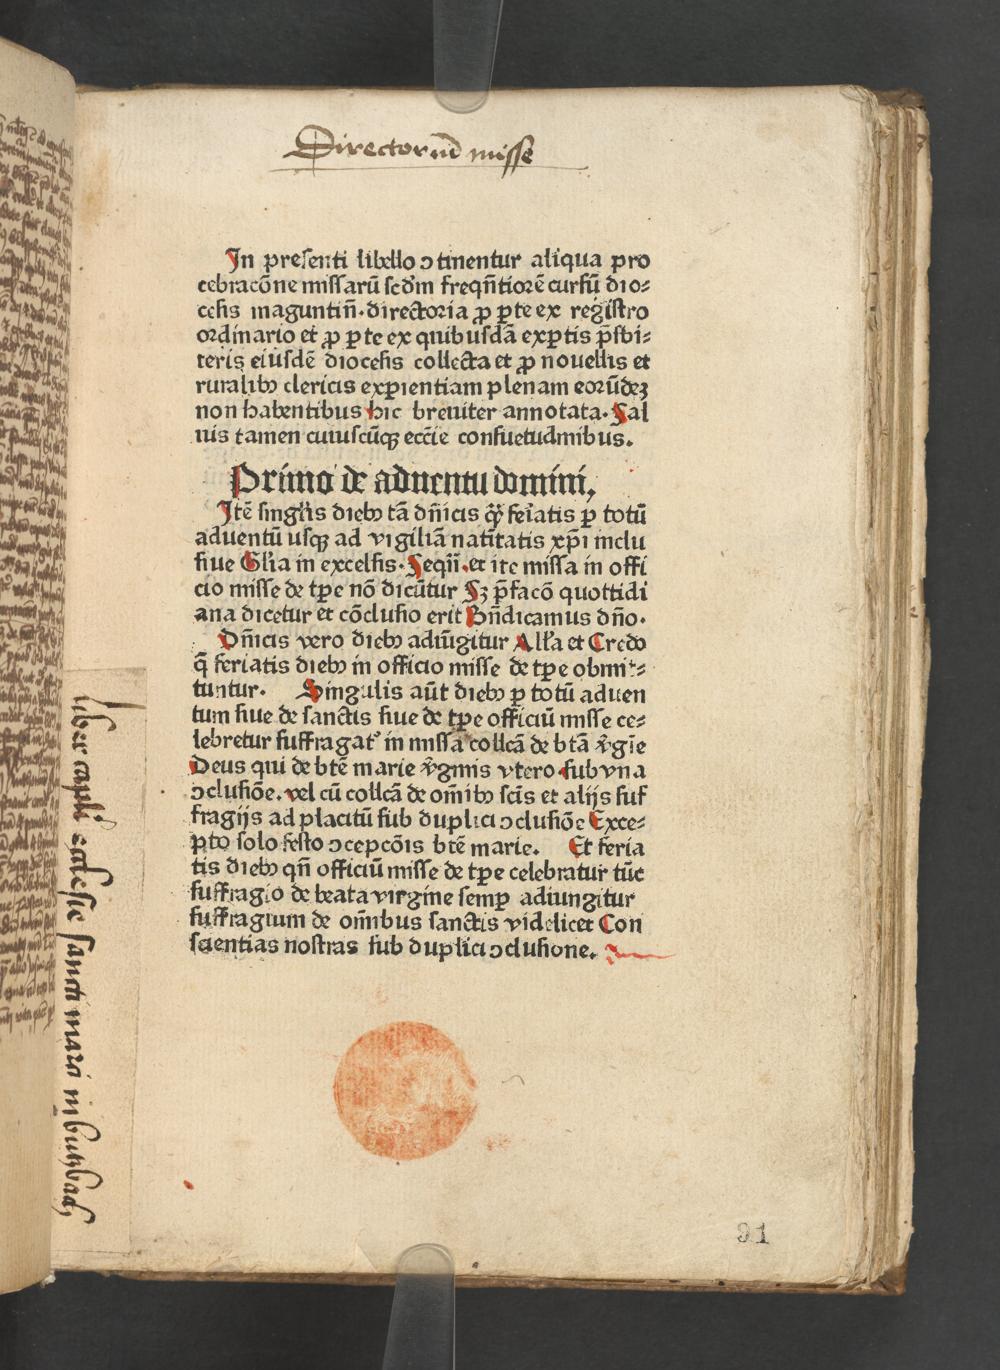 Directoriū misse
In presenti libello ↄtinentur aliqua pro
cebracōne missarū scd'm freqn̄tiorē cursū dio⸗
cesis maguntin̄. directoria ꝓ ꝑte ex registro
ordinario et ꝓ ꝑte ex quibusdā exꝑtis p̄sbi⸗
teris eiusdē diocesis collecta et ꝓ nouellis et
ruralibꝫ clericis exꝑientiam plenam eorūdeꝫ
non habentibus hic breuiter annotata. Sal
uis tamen cuiuscūqꝫ eccīe consuetudinibus.
Primo de aduentu domini.
Itē singl'is diebꝫ tā dn̄icis qꝫ̄ fer̄iatis ꝑ totū
aduentū usqꝫ ad vigiliā natītatis xp̄i inclu
siue Gl'ia in excelsis. Seqn̄. et ite missa in offi
cio misse de tꝑe nō dicūtur Sꝫ p̄facō quottidi
ana dicetur et cōclusio erit Bn̄dicamus dn̄o.
Dn̄icis vero diebꝫ adiūgitur All'a et Credo
q̄ feriatis diebꝫ in officio misse de tꝑe obmit⸗
tuntur. Singulis aūt diebꝫ ꝑ totū aduen
tum siue de sanctis siue de tꝑe officiū misse ce⸗
lebretur suffragat' in missa collcā de btā v̄gīe
Deus qui de btē marie v̄ginis vtero. sub vna
ↄclusiōe. vel cū collcā de om̄ibꝫ scīs et alijs suf
fragijs ad placitū sub duplici ↄclusiōe Exce⸗
pto solo festo ↄcepcōis btē marie. Et feria
tis diebꝫ qn̄ officiū misse de tꝑe celebratur tūc
suffragio de beata virgine semꝑ adiungitur
suffragium de om̄ibus sanctis videlicet Con
scientias nostras sub duplici ↄclusione.
liber capl'i ecclesie sancti marci in butzbach
91